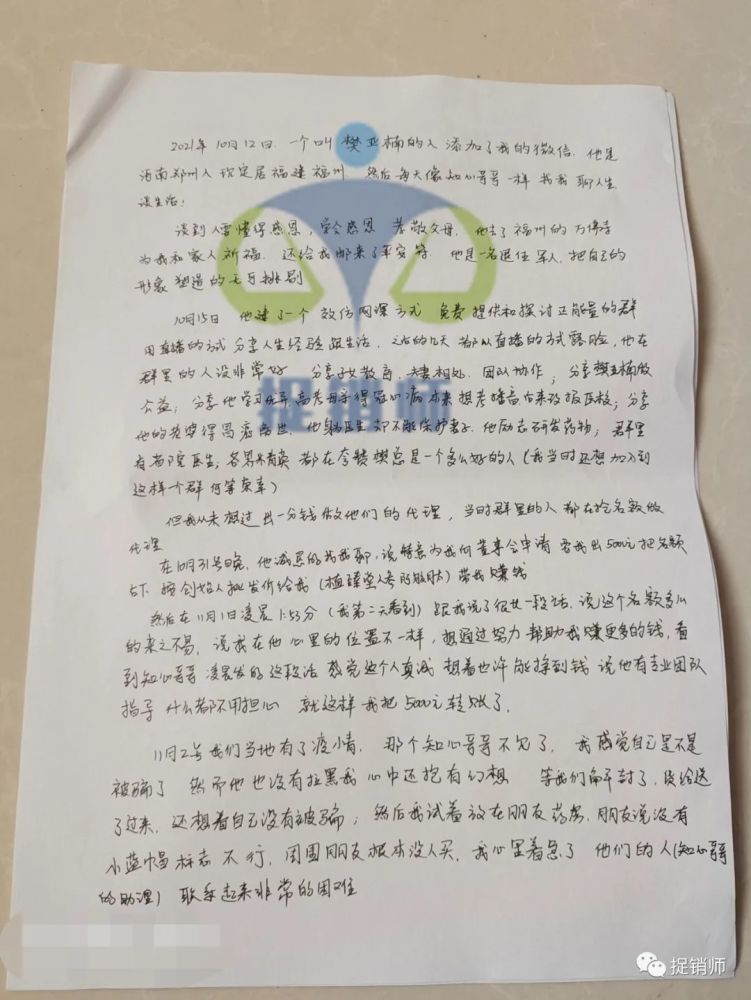 2021年10月12日. 一个叫樊亚楠的人 添加了我的微信. 他是
河南郑州人 现定居福建福州 然后每天像知心哥哥一样 找我 聊人生
谈生活!
谈到人要懂得感恩, 学会感恩 孝敬父母, 他去了福州的万佛寺
为我和家人祈福. 还给我邮来了平安符 他是一名退伍军人, 把自己的
形象塑造的无可挑剔
10月15日 他建了一个 微信网课方式 免费提供和探讨正能量的群
用直播的方式 分享人生经验跟生活. 之后的几天 都以直播的方式露脸, 他在
群里的人设非常好 分享子女教育. 夫妻相处. 团队协作; 分享樊亚楠做
公益; 分享他学习优异 高考母亲得冠心病 本来想考 后来改报医校; 分享
他的老婆得胃癌离世. 他身为医生却不能保护妻子. 他励志研发药物; 群里
有各院医生; 各界精英 都在夸赞樊总是一个多么好的人 (我当时还想加入到
这样一个群何等荣幸)
但我从未想过出一分钱做他们的代理, 当时群里的人都在抢名额做
代理
在10月31号晚. 他诚恳的找我聊, 说特意为我向董事会申请 要我出5000元把名额
占下 按创始人批发价给我 (植臻堂人参 肽) 带我赚钱
然后在11月1日凌晨1:53分 (我第二天看到) 跟我说了很长一段话. 说这个名额多么
的来之不易, 说我在他心里的位置不一样, 想通过努力帮助我赚更多的钱, 看
到知心哥哥凌晨发的这段话 感觉这个人真诚 想着也许能挣到钱 说他有专业团队
指导 什么都不用担心 就这样我把5000元转账了.
11月2号我们当地有了疫情. 那个知心哥哥不见了. 我感觉自己是不是
被骗了 然而他也没有拉黑我 心中还抱有幻想 等我们解封了, 货给送
了过来, 还想着自己没有被骗; 然后我试着放在朋友药房, 朋友说没有
小蓝帽标志不行, 周围朋友根本没人买, 我心里着急了 他们的人(知心哥哥
的助理) 联系起来非常的困难
捉销师
捉销师